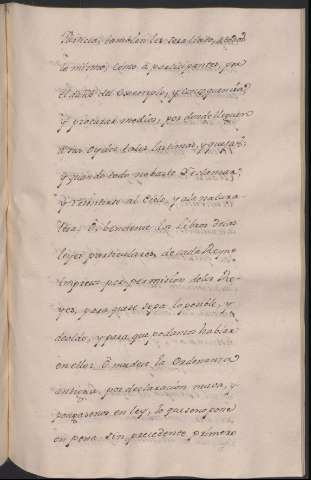 Justicia, tambien les sera licito, a todos
lo mismo, como à participantes, por
el daño del exemplo, y consequencia,
y procurar medios, por donde lleguen
a sus oydos tales lastimas, y quexas;
y quando todo no baste Reclamar,
y remitirse al Cielo, y a la natura
leza. O, bendense los libros de las
leyes particulares, de cada Reyno
impresas por permision de los Re-
yes, para que se sepa lo posible, y
de ello, y para que podamos hablar
en ellos. O, mudese la Ordenanza
antigua, por declaracion nueva, y
pongasenos en ley, lo que se nos pone
en pena. sin precedente primero